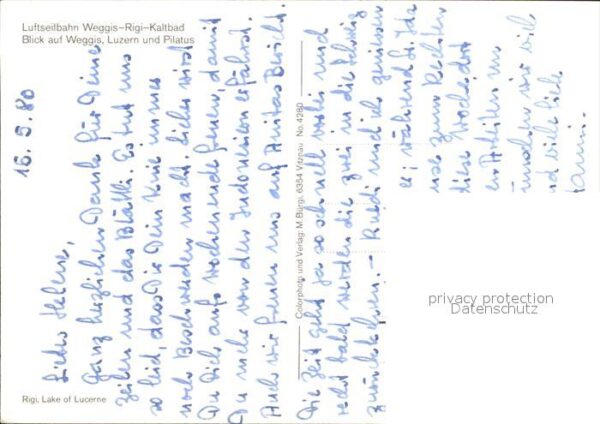 Luftseilbahn Weggis–Rigi–Kaltbad
Blick auf Weggis, Luzern und Pilatus
16. 5. 80
Liebe Helene,
Ganz herzlichen Dank für Deine
Zeilen und das Blättli. Es tut uns
so leid, dass Dir Dein Knie immer
noch Beschwerden macht. Sicher wirst
Du Dich aufs Wochenende freuen, damit
Du mehr von der Indonesien erfährst.
Auch wir freuen uns auf Anitas Bericht.
Colorphoto und Verlag: M. Bürgi, 6354 Vitznau No. 4280
Die Zeit geht ja so schnell vorbei und
recht bald werden die zwei in die Schweiz
zurückkehren. – Ruedi und ich geniessen
es, während
uns zum
diese Wochen
wir viel
und viele liebe
privacy protection
Datenschutz
Rigi, Lake of Lucerne